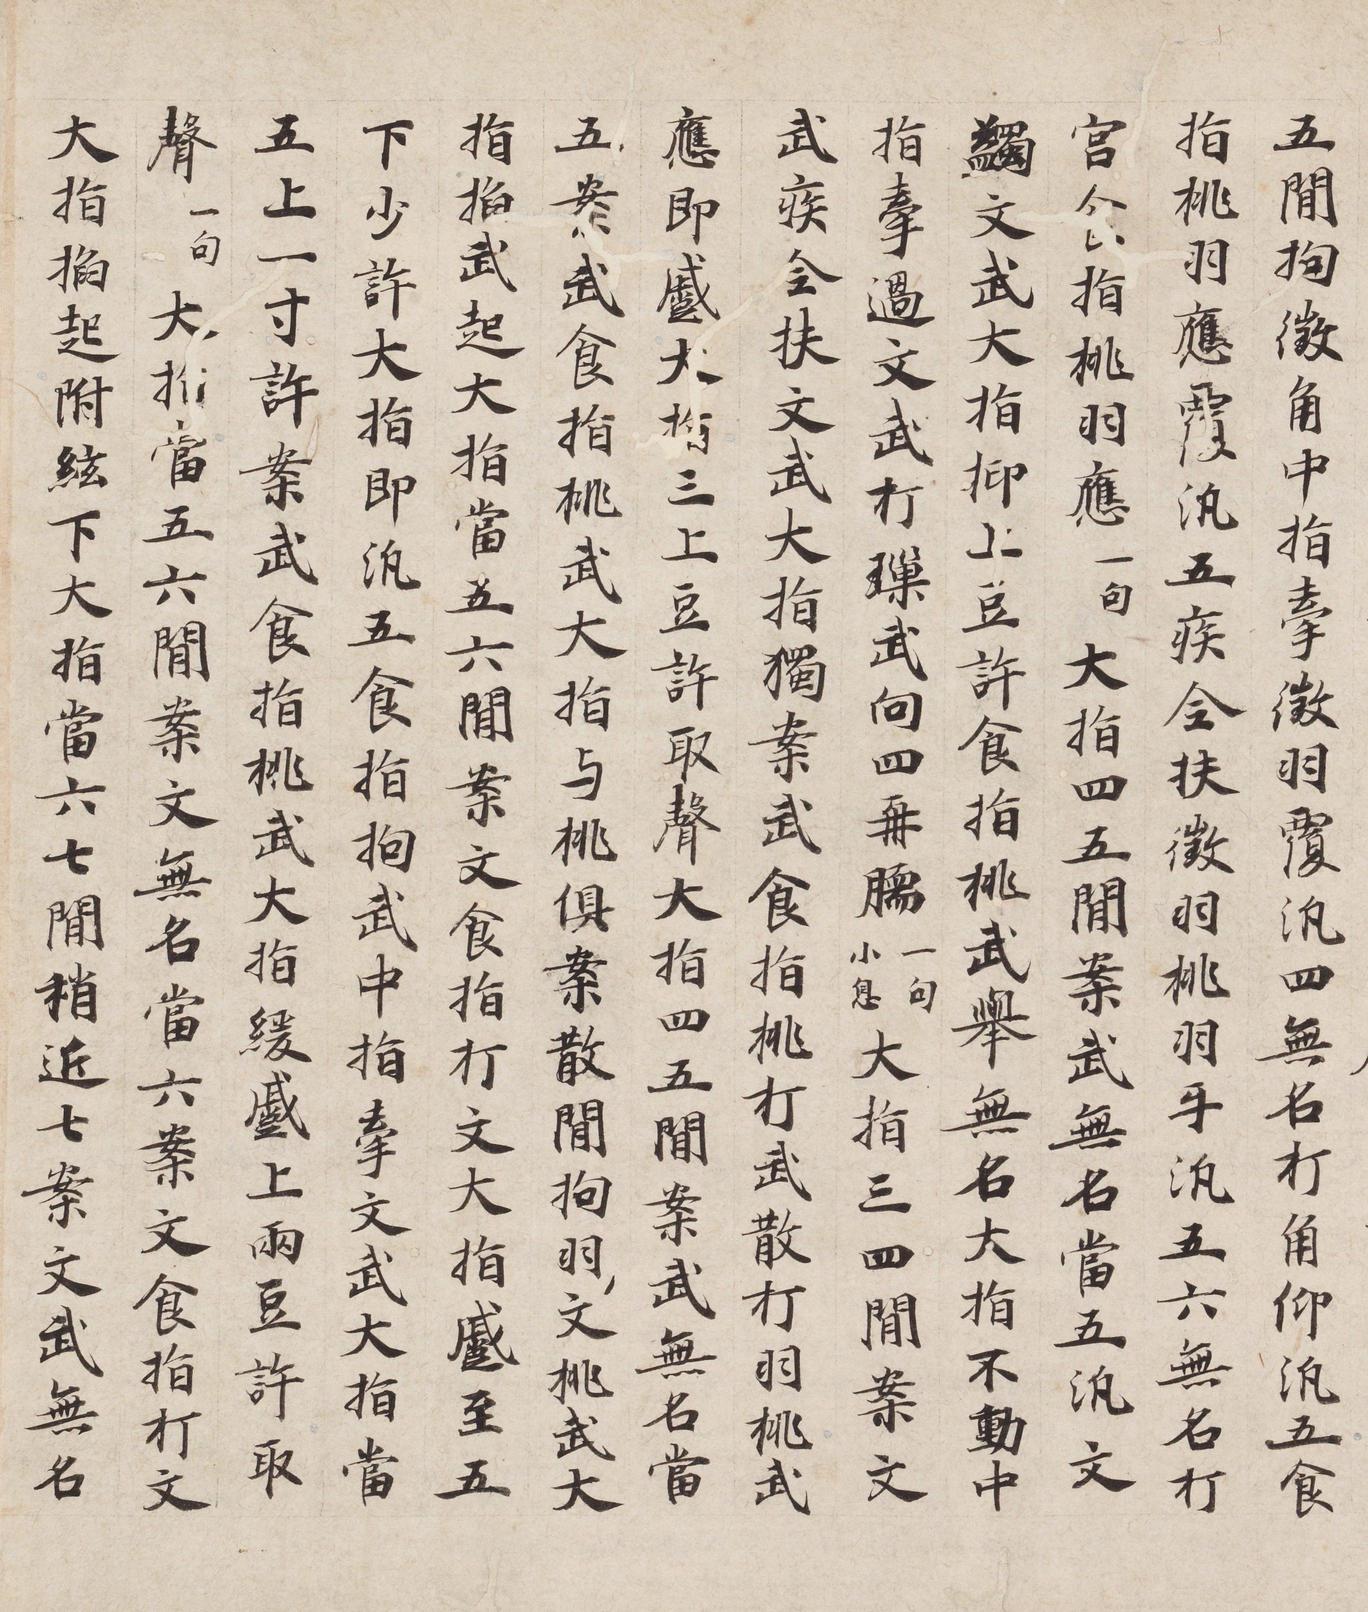 五間拘徵角中指牽徵羽覆汎四無名打角仰汎五食
指桃羽應覆汎五疾全扶徵羽桃羽牙汎五六無名打
宮食指桃羽應一句大指四五間案武無名當五汎文
蠲文武大指抑上豆許食指桃武舉無名大指不動中
指牽過文武打瑮武向四再臑一句小息大指三四間案文
武疾全扶文武大指獨案武食指桃打武散打羽桃武
應即蹙大指三上豆許取聲大指四五間案武無名當
五案武食指桃武大指与桃俱案散間拘羽文桃武大
指搯武起大指當五六間案文食指打文大指蹙至五
下少許大指即汎五食指拘武中指牽文武大指當
五上一寸許案武食指桃武大指緩蹙上兩豆許取
聲一句大指當五六間案文無名當六案文食指打文
大指搯起附絃下大指當六七間稍近七案文武無名